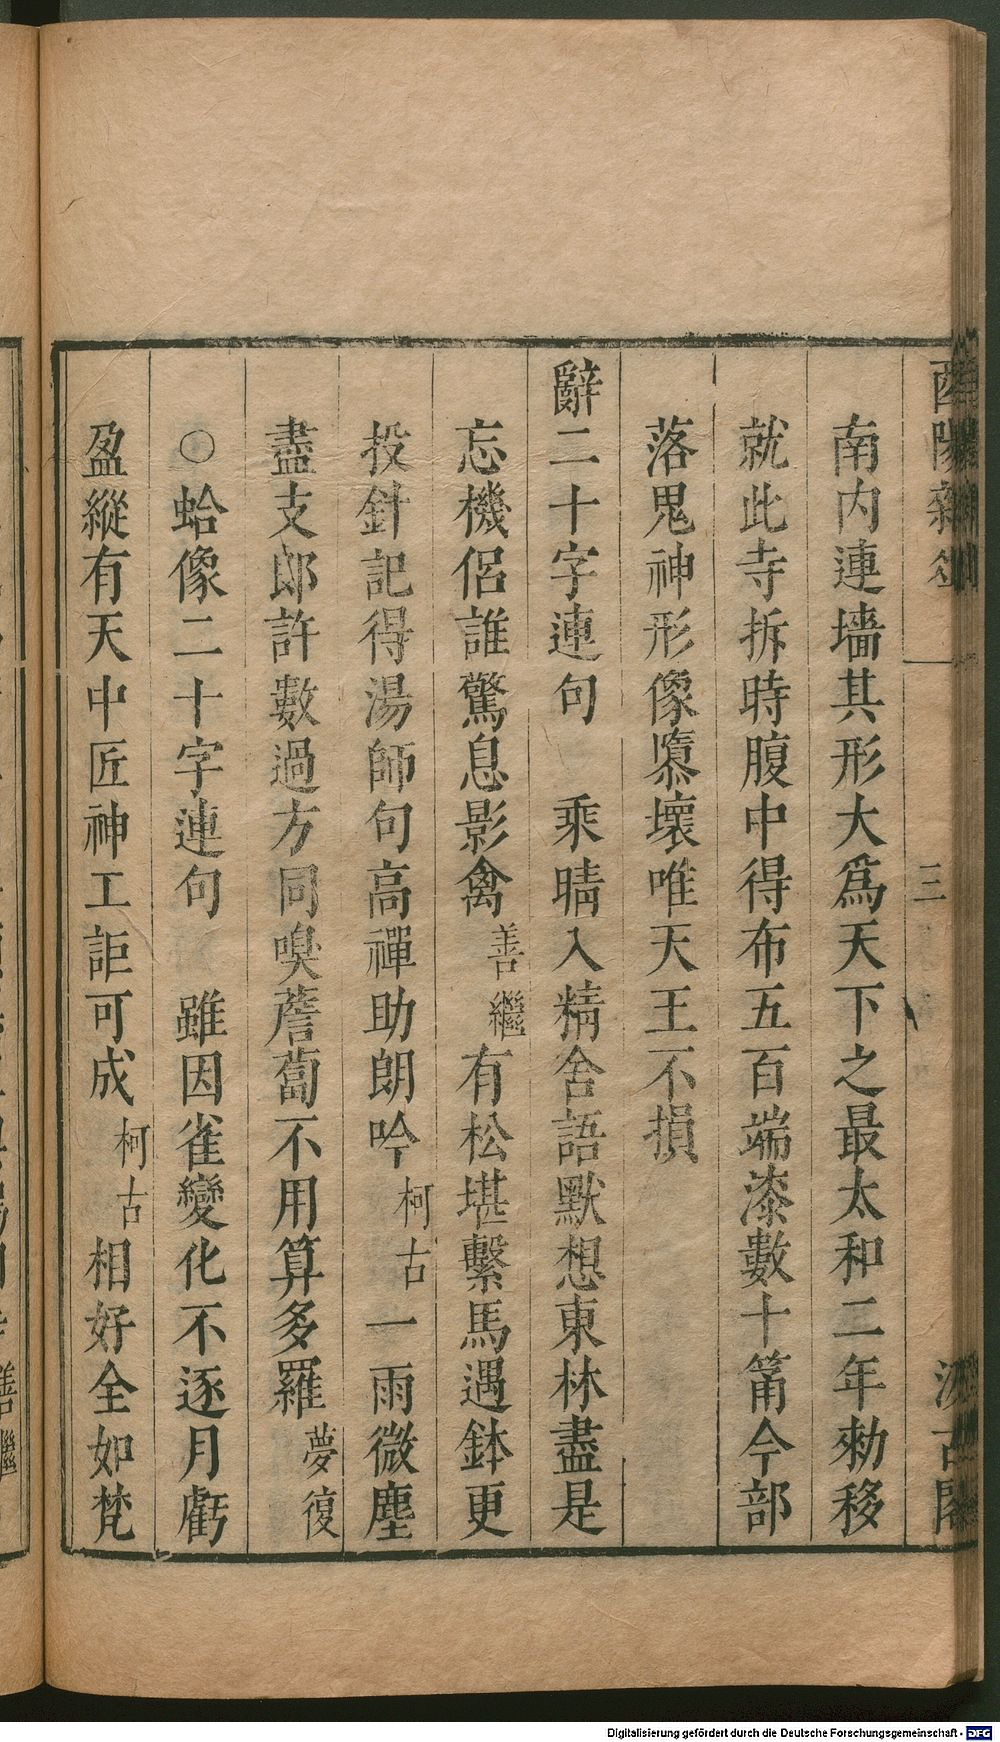 酉陽雜俎
三
汲古閣
南内連墻其形大爲天下之最太和二年勑移
就此寺拆時腹中得布五百端漆數十筩今部
落鬼神形像隳壞唯天王不損
辭二十字連句 乘晴入精舍語默想東林盡是
忘機侶誰驚息影禽善繼有松堪繫馬遇鉢更
投針記得湯師句高禪助朗吟柯古一雨微塵
盡支郎許數過方同嗅薝蔔不用算多羅夢復
○蛤像二十字連句 雖因雀變化不逐月虧
盈縱有天中匠神工詎可成柯古相好全如梵
善繼
Digitalisierung gefördert durch die Deutsche Forschungsgemeinschaft - DFG